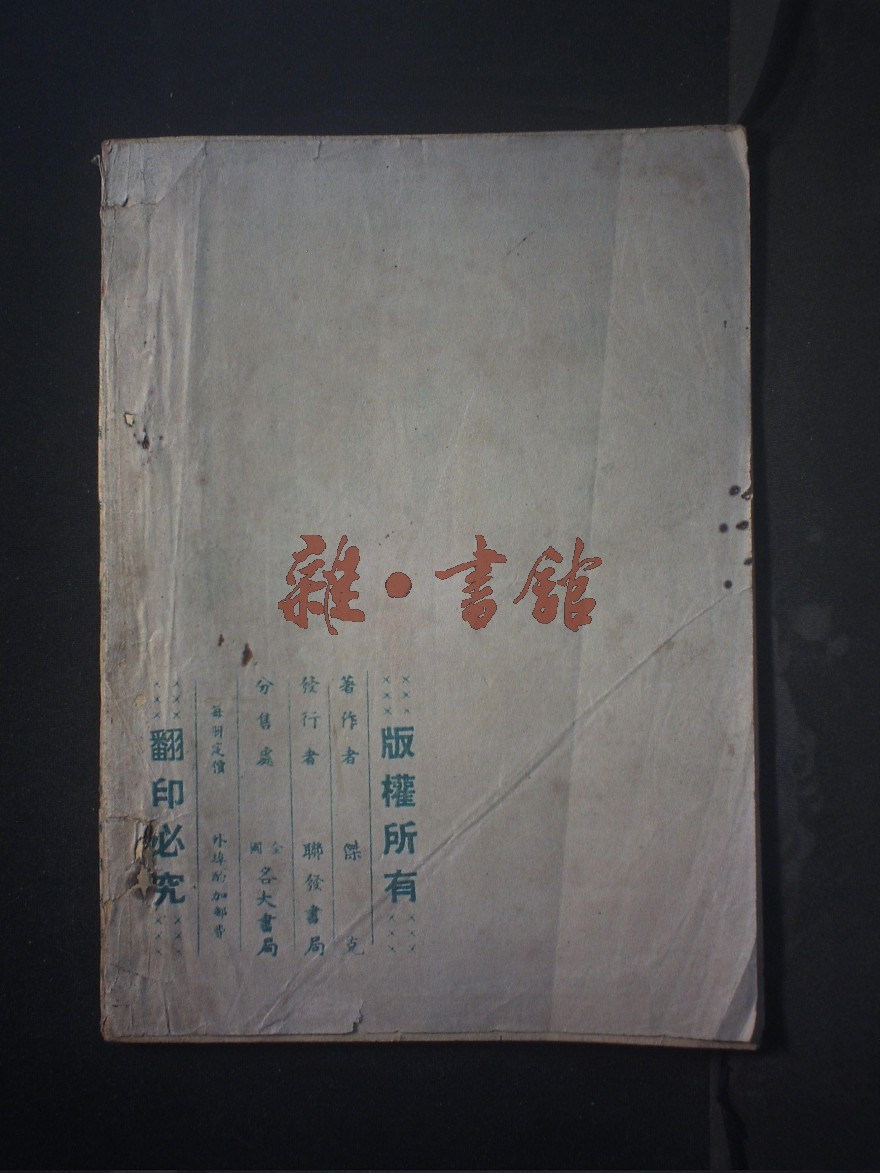 雜·書館
×××版權所有×××
著作者 傑克
發行者 聯發書局
分售處 全國各大書局
每冊定價 外埠酌加郵費
×××翻印必究×××